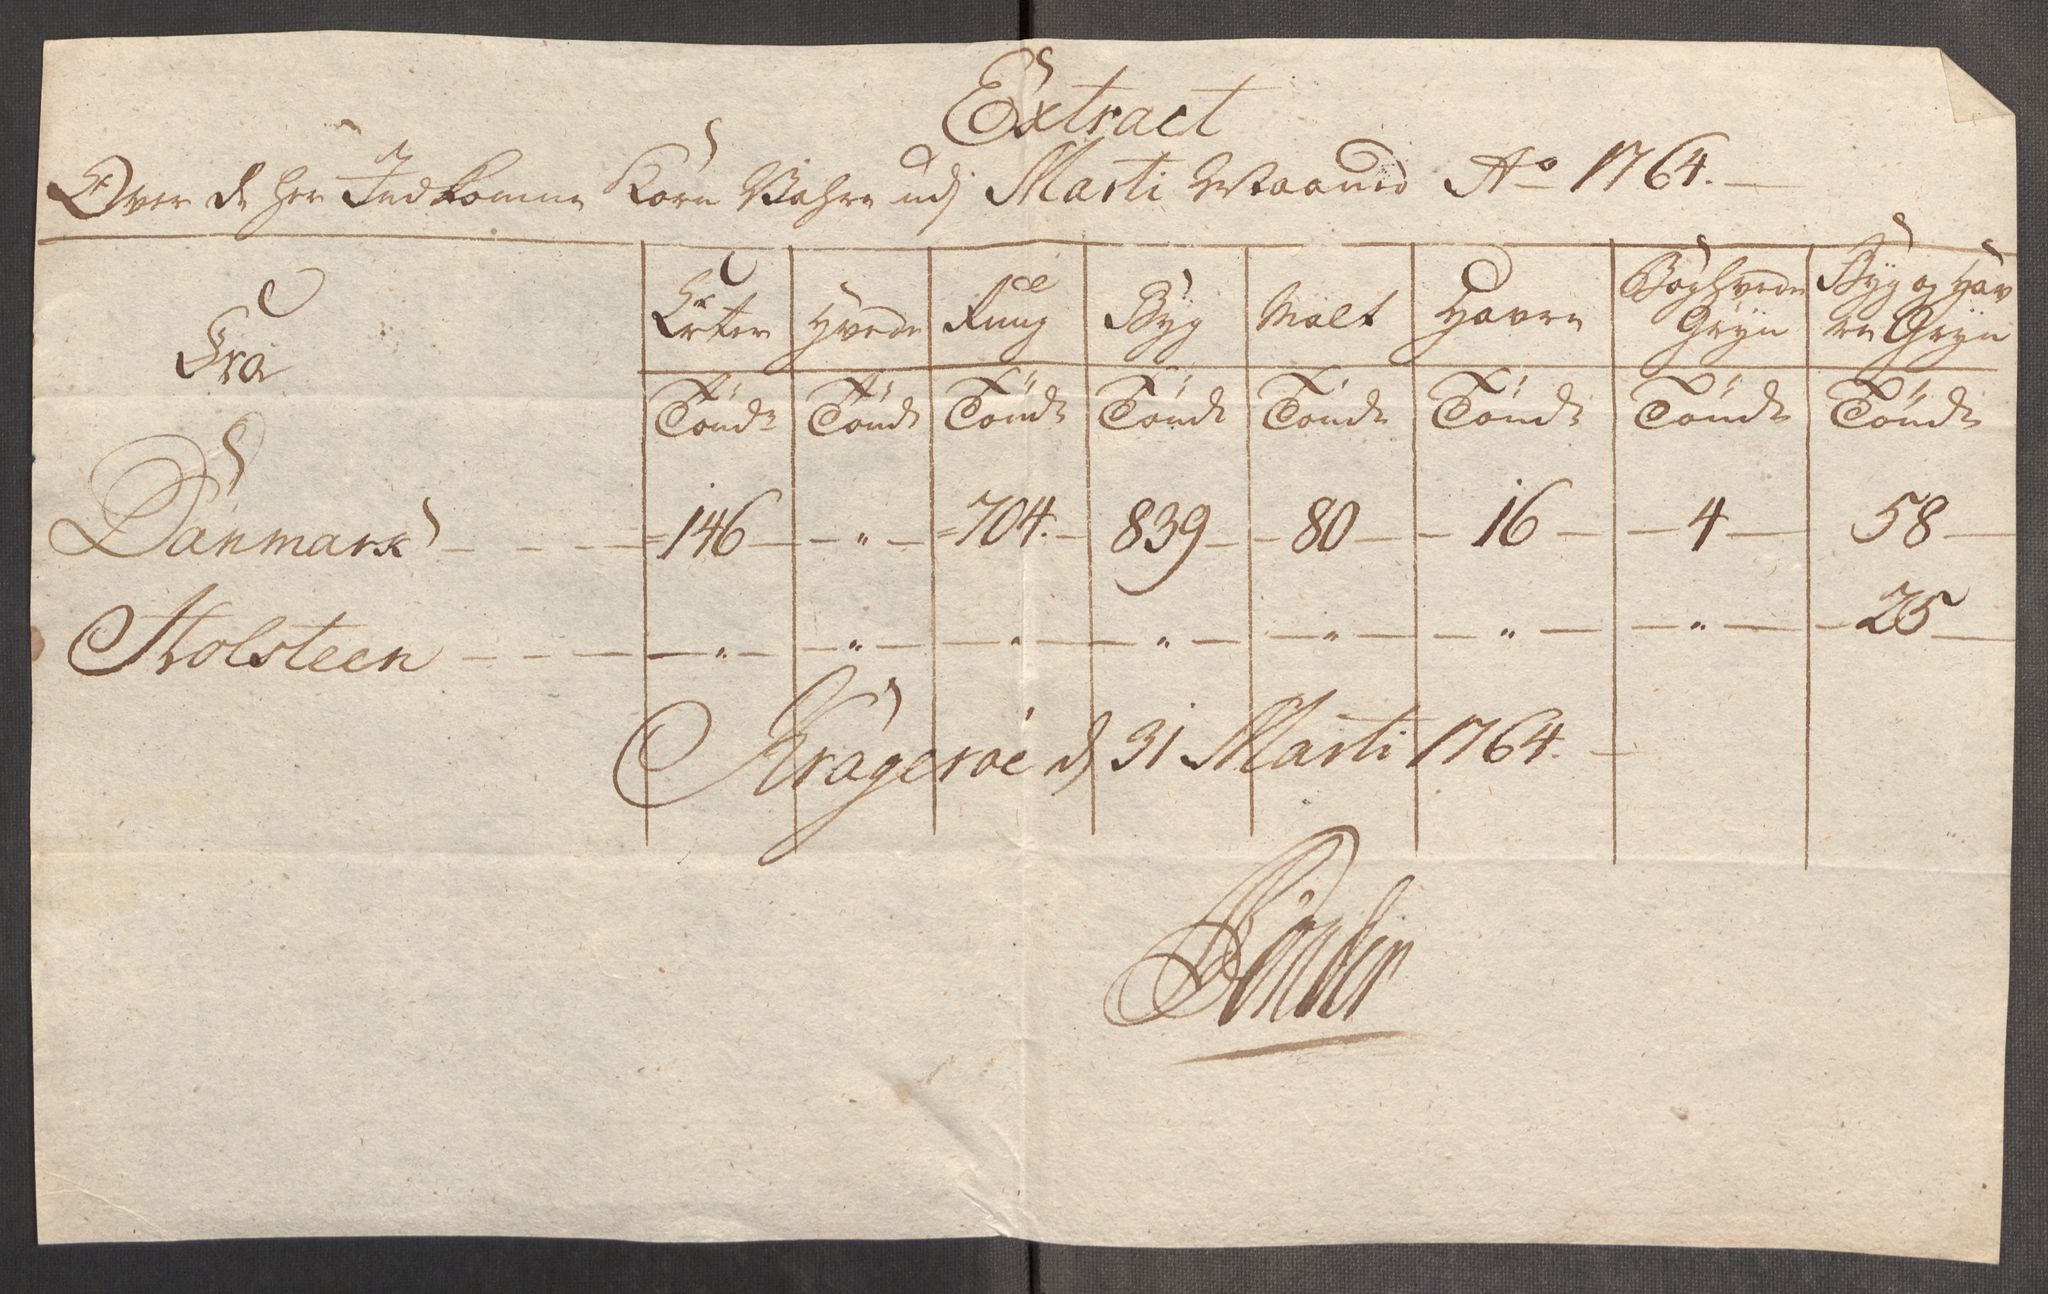 Extract
Over de her Indkomne Korn Vahre udj Marti Maaned Ao 1764.
Fra
Erter Hvede Rug Byg Malt Havre Boghvede Gryn Byg og Hav
re Gryn
Tønde Tønde Tønde Tønde Tønde Tønde Tønde Tønde
Danmark 146 " 704. 839 80 16 4 58
Holsteen " " " " " " " 25
Krageröe d 31 Marti 1764.